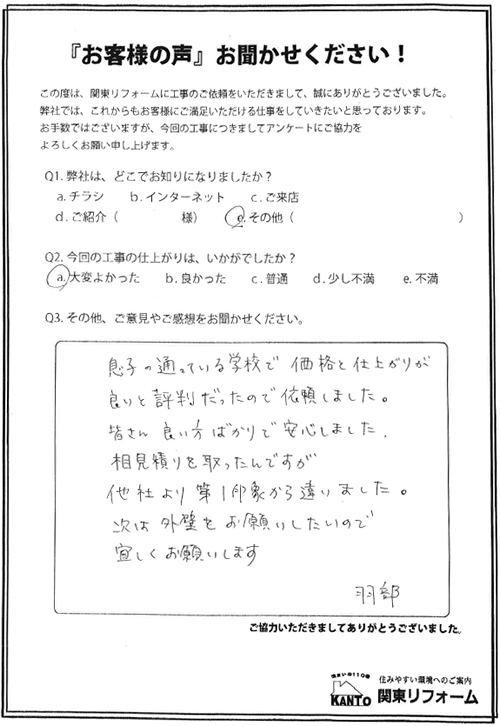 『お客様の声』お聞かせください！
この度は、関東リフォームに工事のご依頼をいただきまして、誠にありがとうございました。
弊社では、これからもお客様にご満足いただける仕事をしていきたいと思っております。
お手数ではございますが、今回の工事につきましてアンケートにご協力を
よろしくお願い申し上げます。
Q1. 弊社は、どこでお知りになりましたか？
a. チラシ　b. インターネット　c. ご来店
d. ご紹介（　　　　様）　e. その他（　　　　　　　　）
Q2. 今回の工事の仕上がりは、いかがでしたか？
a. 大変よかった　b. 良かった　c. 普通　d. 少し不満　e. 不満
Q3. その他、ご意見やご感想をお聞かせください。
息子の通っている学校で 価格と仕上がりが
良いと評判だったので依頼しました。
皆さん 良い方ばかりで安心しました.
相見積りを取ったんですが
他社より第1印象から違いました。
次は外壁をお願いしたいので
宜しくお願いします
羽部
ご協力いただきましてありがとうございました。
住まいの110番
KANTO
住みやすい環境へのご案内
関東リフォーム